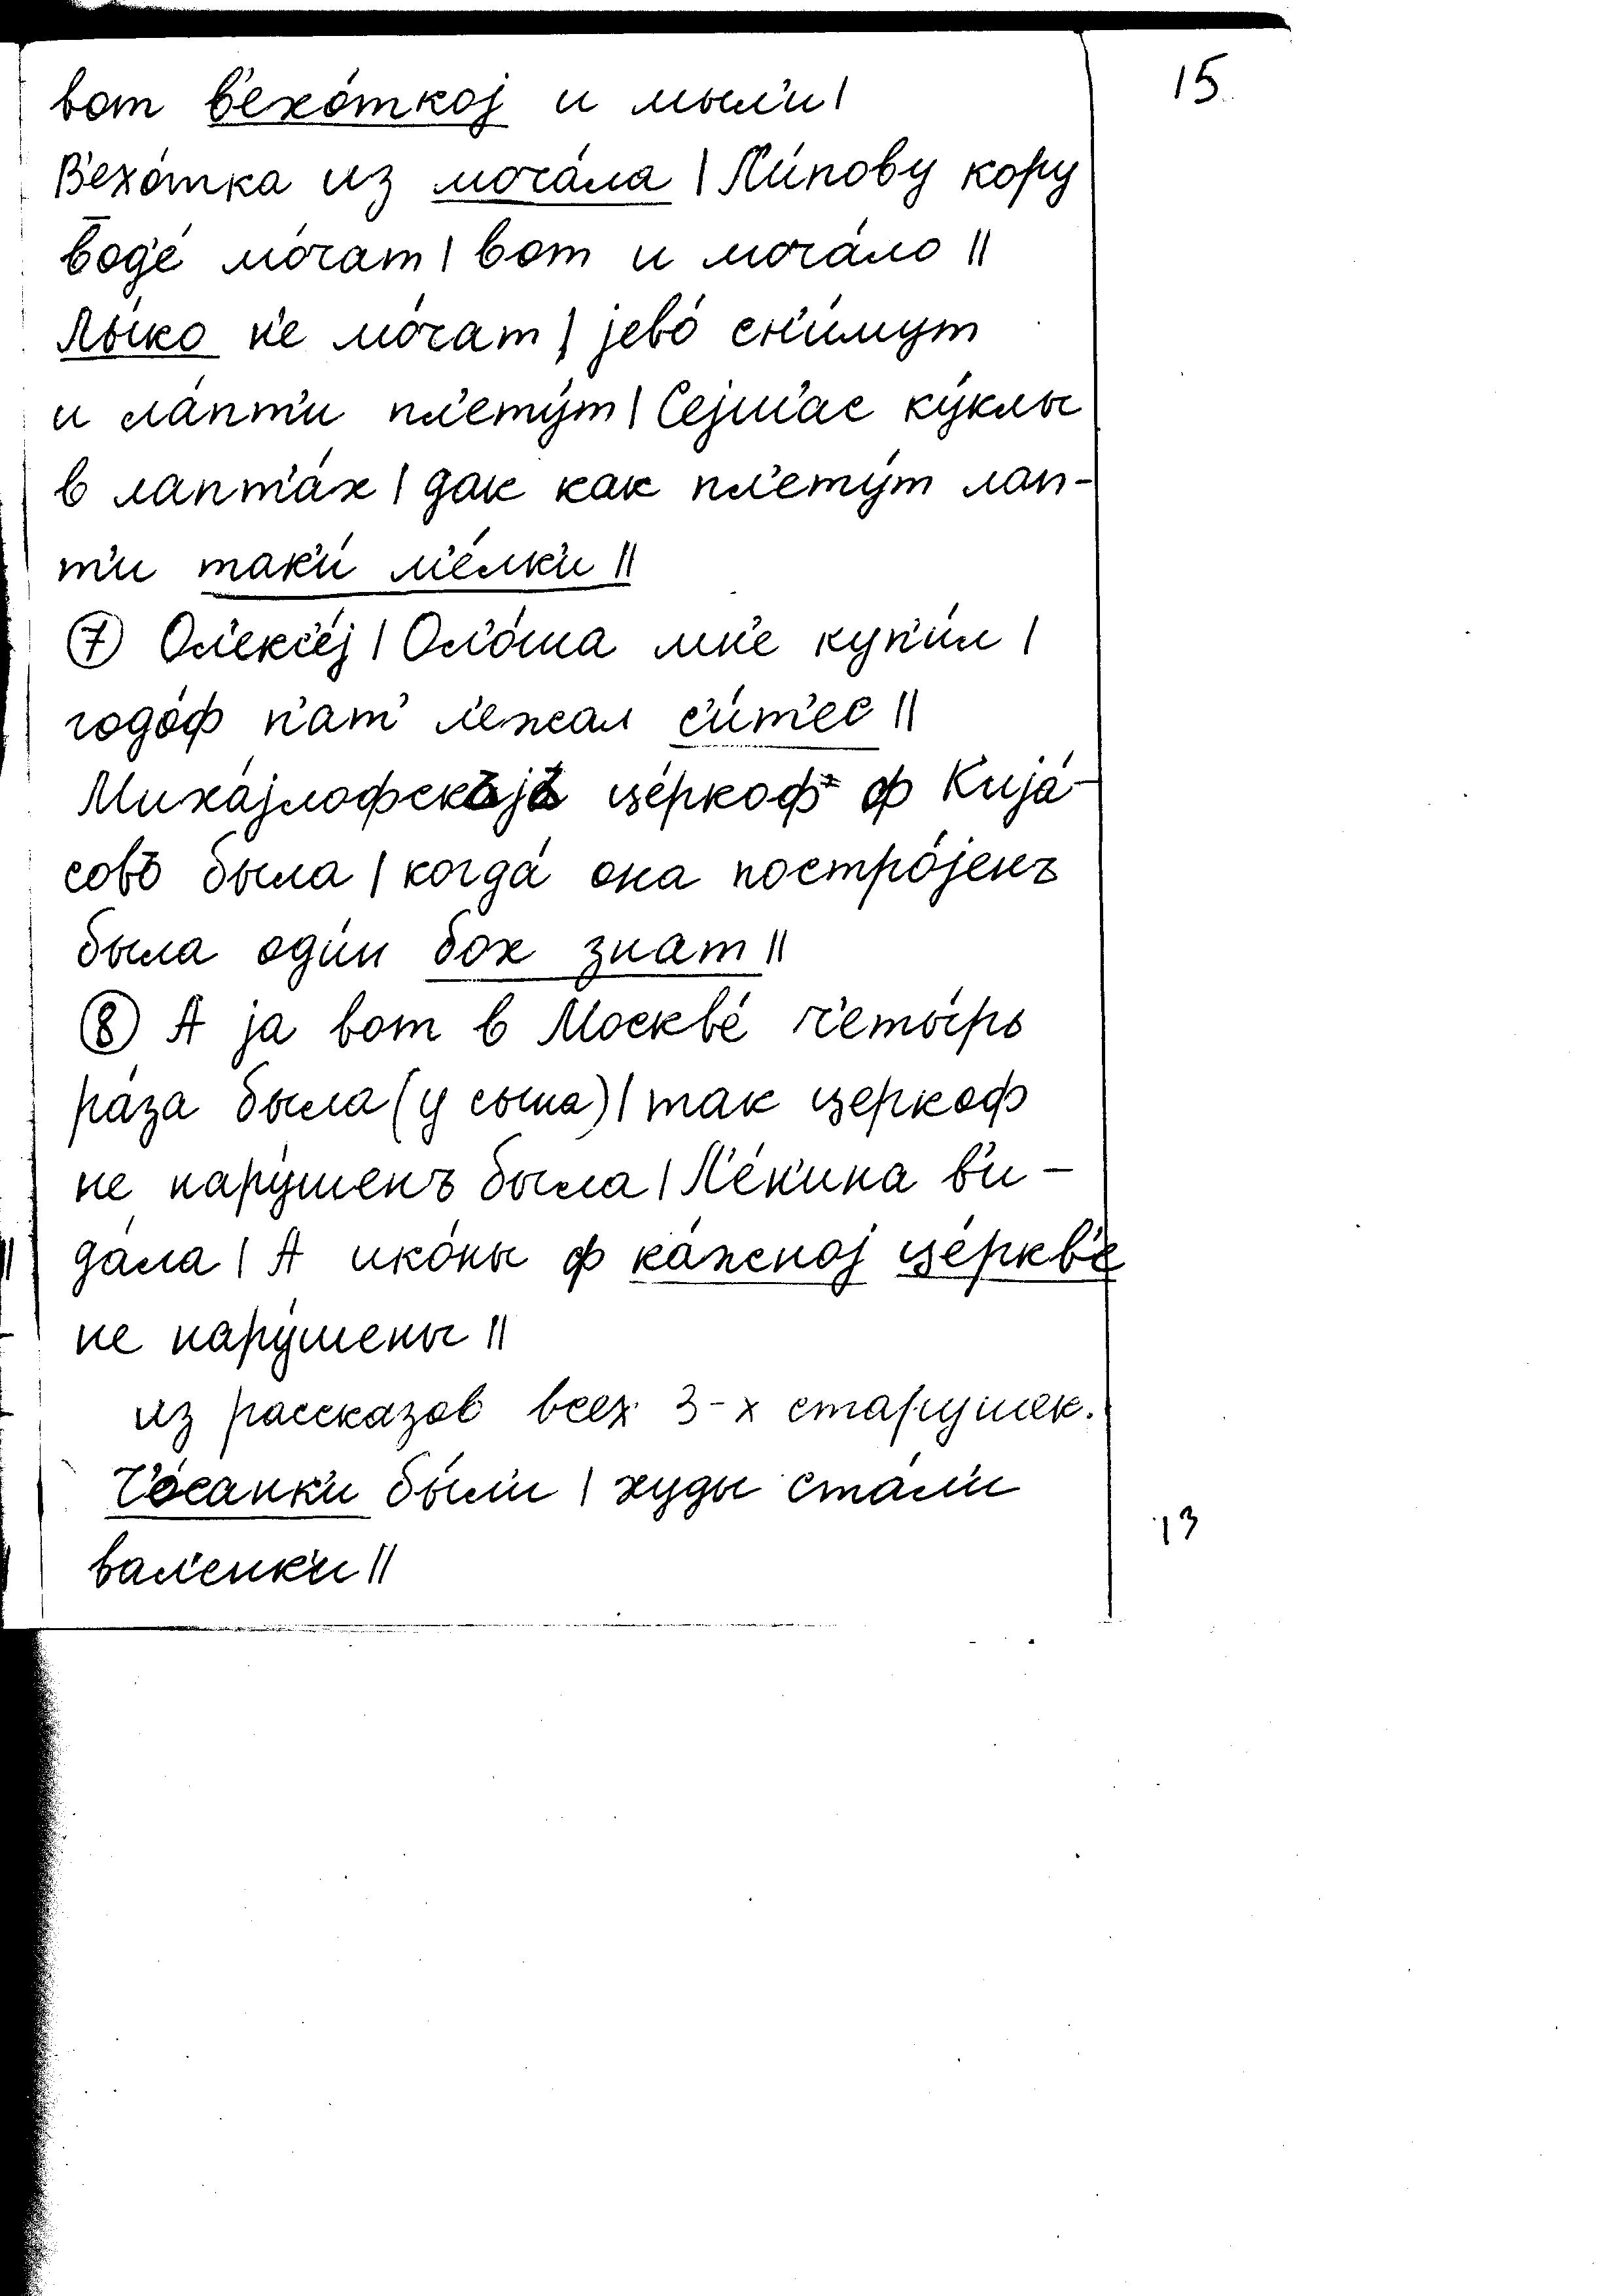 15
вот в'ехо́ткој и мыл'и |
В'ехо́тка из моча́ла | Л'и́пову кору
в̄од'е́ мо́чат | вот и моча́ло ||
Лы́ко н'е мо́чат | јево́ сн'и́мут
и ла́пт'и пл'ету́т | Сејч'ас ку́клы
в лапт'а́х | дак как пл'ету́т лап-
т'и так'и́ м'е́лк'и ||
⑦ Ол'екс'е́ј | Ол'о́ша мн'е куп'и́л |
годо́ф п'ат' л'ежал с'и́т'ес ||
Миха́јлофскъјъ це́ркоф ф Кија́-
совъ была | когда́ она постро́јенъ
была од'и́н бох знат ||
⑧ А ја вот в Москве́ ч'еты́рь
ра́за была (у сына) | так церкоф
не нару́шенъ была | Л'е́н'ина в'и-
да́ла | А ико́ны ф ка́жној це́ркв'е
не нару́шены ||
из рассказов всех 3-х старушек.
Ч'о́санк'и бы́л'и | худы ста́л'и
вал'енк'и ||
13